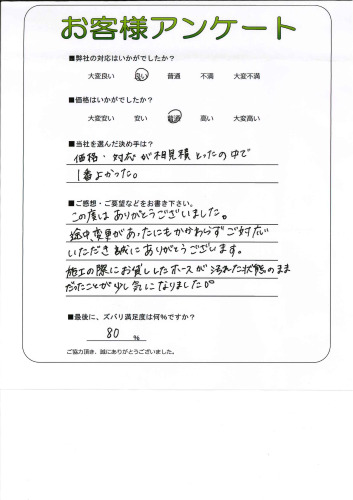 お客様アンケート
■弊社の対応はいかがでしたか?
大変良い 良い 普通 不満 大変不満
■価格はいかがでしたか?
大変安い 安い 普通 高い 大変高い
■当社を選んだ決め手は?
価格・対応が相見積とったの中で
1番よかった。
■ご感想・ご要望などをお書き下さい。
この度はありがとうございました。
途中、変更があったにもかかわらずご対応
いただき誠にありがとうございます。
施工の際にお貸ししたホースが汚れた状態のまま
だったことが少し気になりました。
■最後に、ズバリ満足度は何%ですか?
80 %
ご協力頂き、誠にありがとうございました。